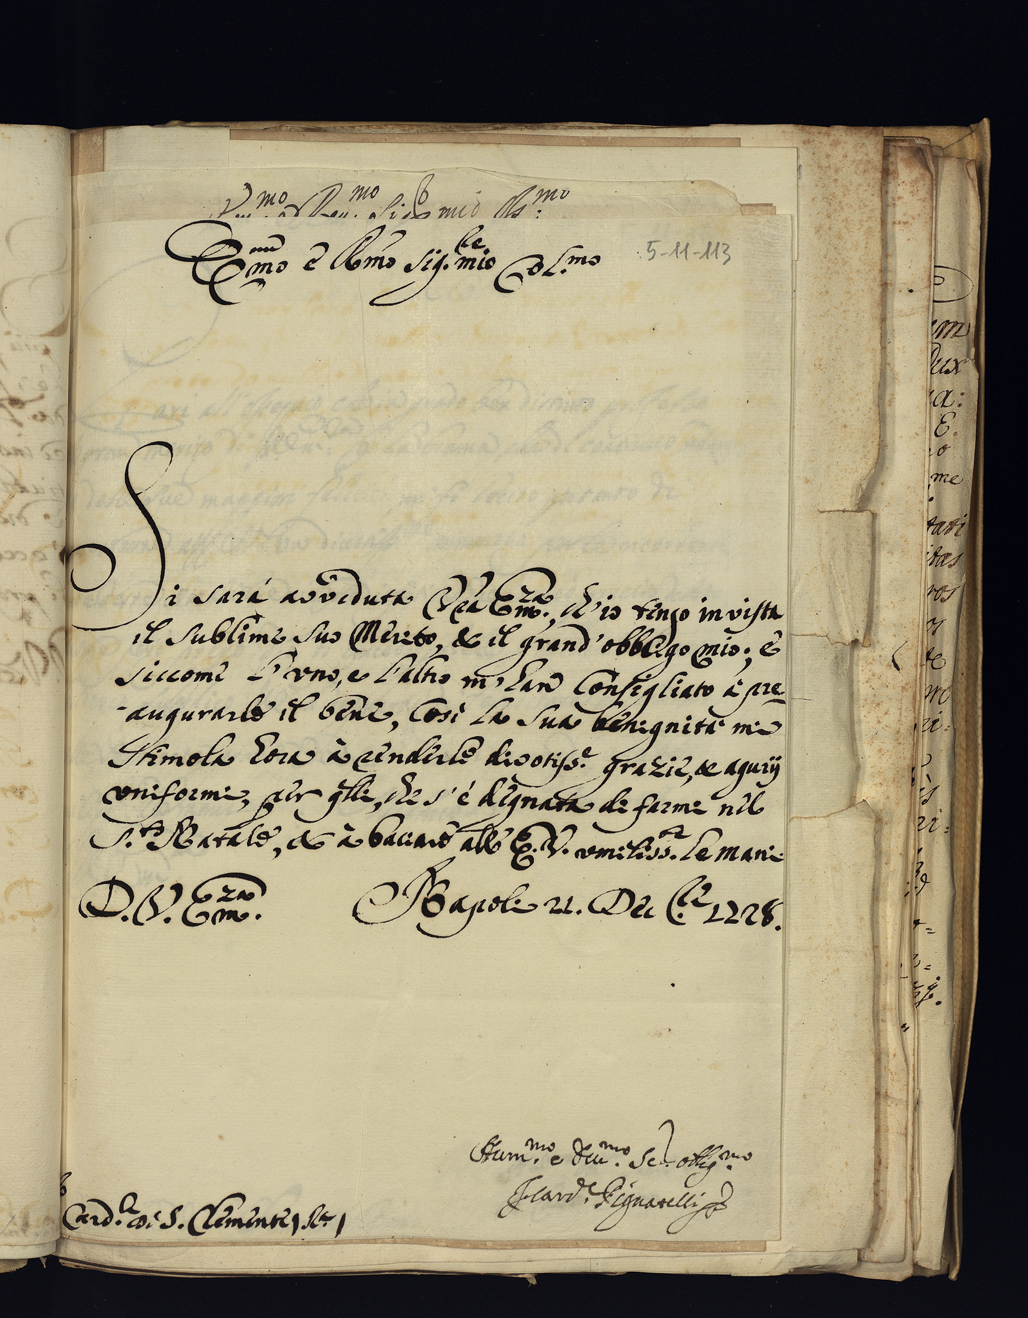 Em̃o e Rm̃o Sig.re mio Col.mo
5-11-113
Si sarà avveduta V͞ra Em.za, ch'io tengo in vista
il sublime suo Merito, & il grand'obbligo mio; e
siccome l'uno, e l'altro m'hanò Consigliato à pre-
augurarle il bene, Così la sua benignità me
stimola hora à renderle divotiss.e grazie, & agurij
uniformi, per q̃lli, che s'è degnata de farme nel
S.to Natale, & à baciare all'E. V. umiliss.te le mani
D. V. Em.za Napoli 21. Dec.bre 1728.
Hum.mo e Deu.mo Se.r obbg.mo
Il card.e Pignatelli
Card.le di S. Clemente